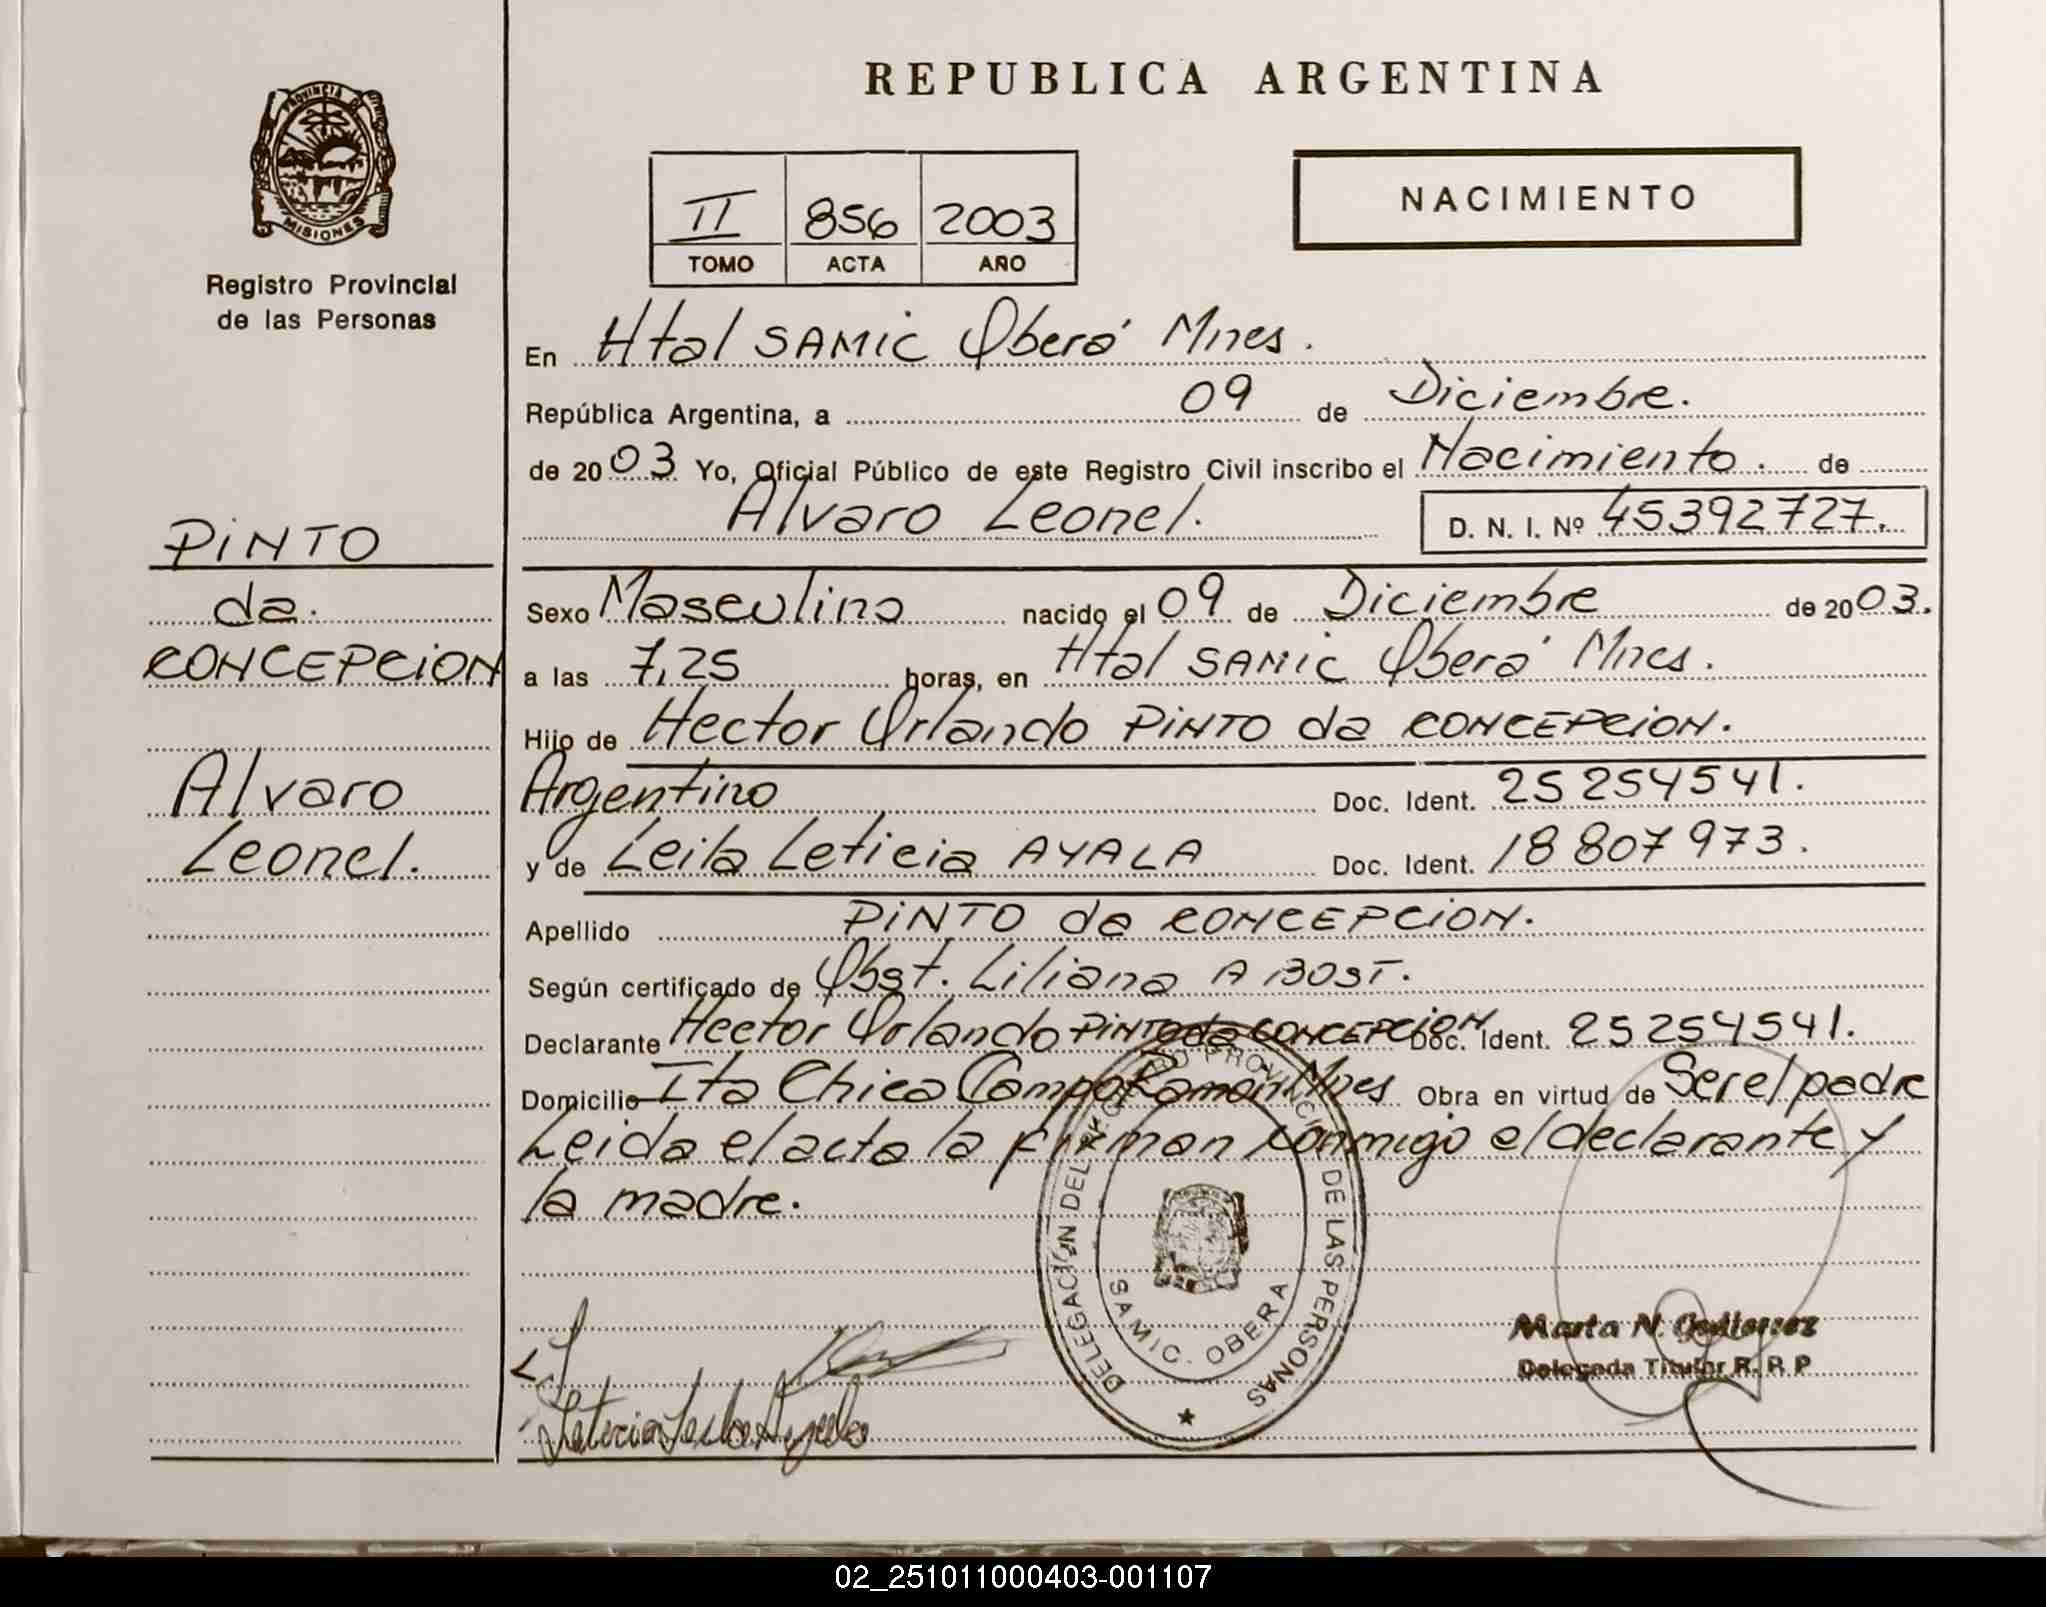 PROVINCIA DE
MISIONES
Registro Provincial
de las Personas
PINTO
da.
CONCEPCION
Alvaro
Leonel.
REPUBLICA ARGENTINA
II 856 2003
TOMO ACTA AÑO
NACIMIENTO
En Htal SAMIC Oberá Mnes.
República Argentina, a 09 de Diciembre.
de 2003 Yo, Oficial Público de este Registro Civil inscribo el Nacimiento. de
Alvaro Leonel. D. N. I. Nº 45392727.
Sexo Masculino nacido el 09 de Diciembre de 2003.
a las 7,25 horas, en Htal SAMIC Oberá Mnes.
Hijo de Hector Orlando PINTO da CONCEPCION.
Argentino Doc. Ident. 25254541.
y de Leila Leticia AYALA Doc. Ident. 18807973.
Apellido PINTO da CONCEPCION.
Según certificado de Obst. Liliana A BOST.
Declarante Hector Orlando PINTO da CONCEPCION Doc. Ident. 25254541.
Domicilio Ita Chica Campo Ramon Mnes Obra en virtud de Ser el padre
Leida el acta la firman conmigo el declarante y
la madre.
DELEGACION DEL REGISTRO PROVINCIAL DE LAS PERSONAS
SAMIC. OBERA
Marta N.
Delegada Titular R. P. P
Leticia Leila Ayala
02_251011000403-001107